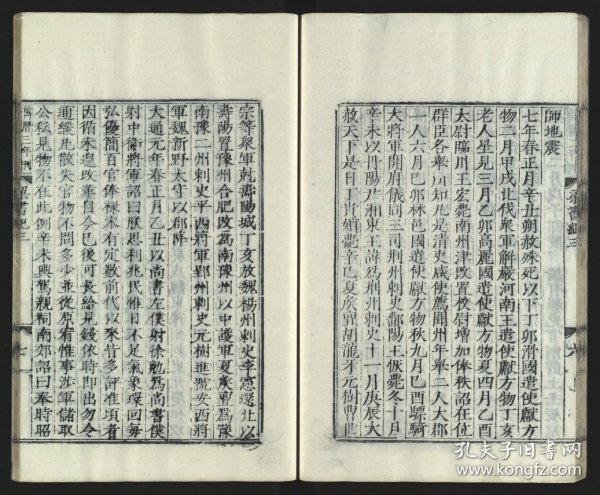 師地震
七年春正月辛丑朔赦殊死以下丁卯滑國遣使獻方
物二月甲戌北伐衆軍解嚴河南王遣使獻方物丁亥
老人星見三月乙卯高麗國遣使獻方物夏四月乙酉
太尉臨川王宏薨南州津改置校尉增加俸秩詔在位
羣臣各舉所知凡是清吏咸使薦聞州年舉二人大郡
一人六月己卯林邑國遣使獻方物秋九月己酉驃騎
大將軍開府儀同三司荊州刺史鄱陽王恢薨冬十月
辛未以丹陽尹湘東王諱爲荊州刺史十一月庚辰大
赦天下是日丁貴嬪薨辛巳夏侯亶胡龍牙元樹曹世
梁書紀三
宗等衆軍剋壽陽城丁亥放魏揚州刺史李憲還北以
壽陽置豫州合肥改爲南豫州以中護軍夏侯亶爲豫
南豫二州刺史平西將軍郢州刺史元樹進號安西將
軍魏新野太守以郡降
大通元年春正月乙丑以尚書左僕射徐勉爲尚書僕
射中衛將軍詔曰朕思利兆民惟日不足氣象環回每
弘優簡百官俸祿本有定數前代以來皆多評准頃者
因循未遑改革自今已後可長給見錢依時即出勿令
逋緩凡散失官物不問多少並從原宥惟事涉軍儲取
公私見物不在此例辛未輿駕親祠南郊詔曰奉時昭
梁書紀三
七
孔夫子旧书网
www.kongfz.com